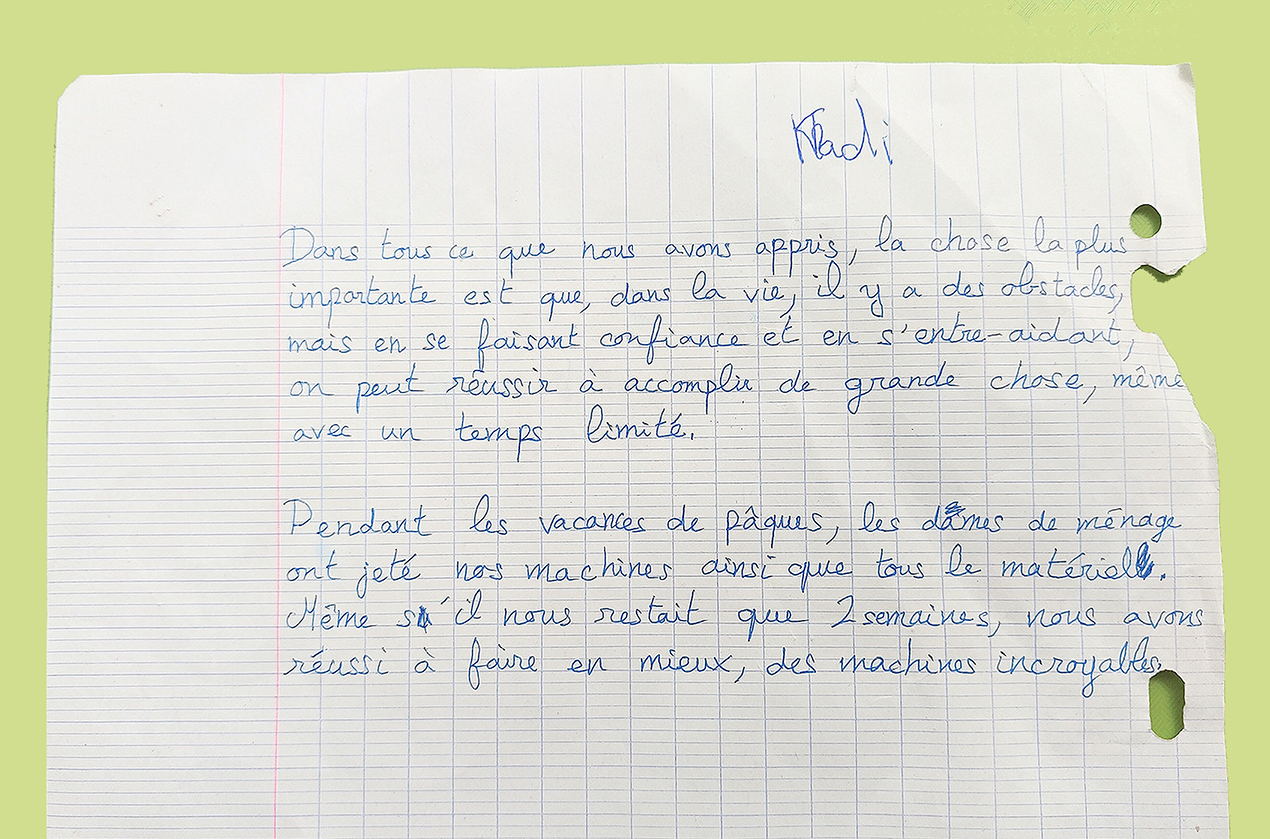 Kadi
Dans tous ce que nous avons appris, la chose la plus
importante est que, dans la vie, il y a des obstacles,
mais en se faisant confiance et en s'entre-aidant,
on peut réussir à accomplir de grande chose, même
avec un temps limité.
Pendant les vacances de pâques, les dames de ménage
ont jeté nos machines ainsi que tous le matériel.
Même s'il nous restait que 2 semaines, nous avons
réussi à faire en mieux, des machines incroyables.